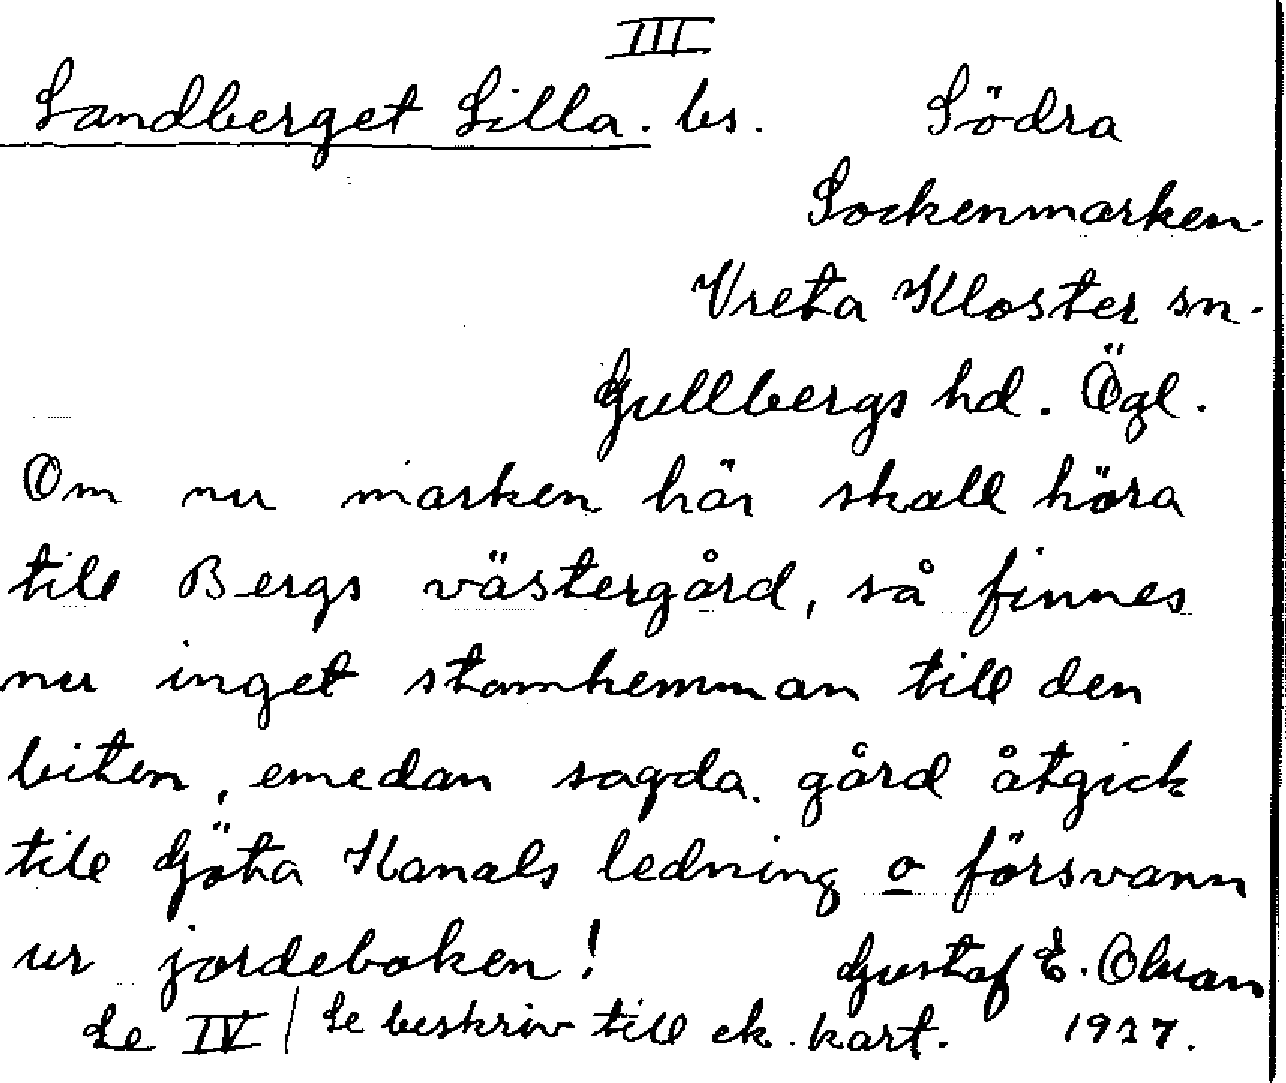 III
Sandberget Lilla. bs. Södra
Sockenmarken.
Vreta Kloster sn.
Gullbergs hd. Ögl.
Om nu marken här skall höra
till Bergs västergård, så finnes
nu inget stamhemman till den
biten, emedan sagda gård åtgick
till Göta Kanals ledning o försvann
ur jordeboken! Gustaf E. Olsson
Se IV / Se beskriv till ek. kart. 1927.